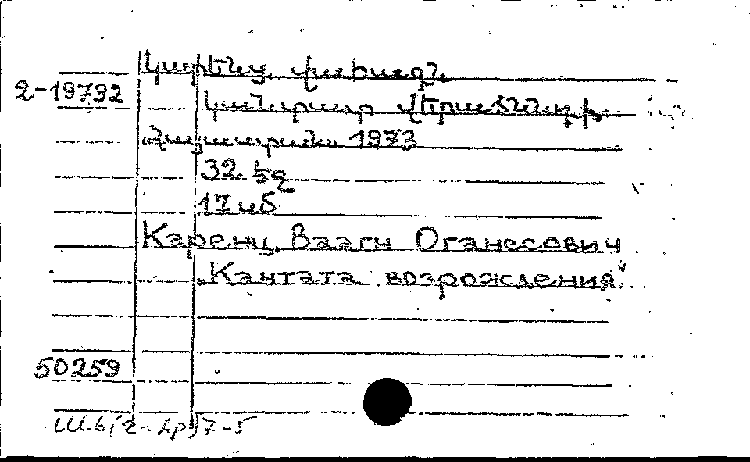 Կարենց, Վահագն
2-19792
Կանտատ վերածննդի
Հայաստան 1973
32 էջ
17 սմ
Каренц, Ваагн Оганесович
„Кантата возрождения"
50259